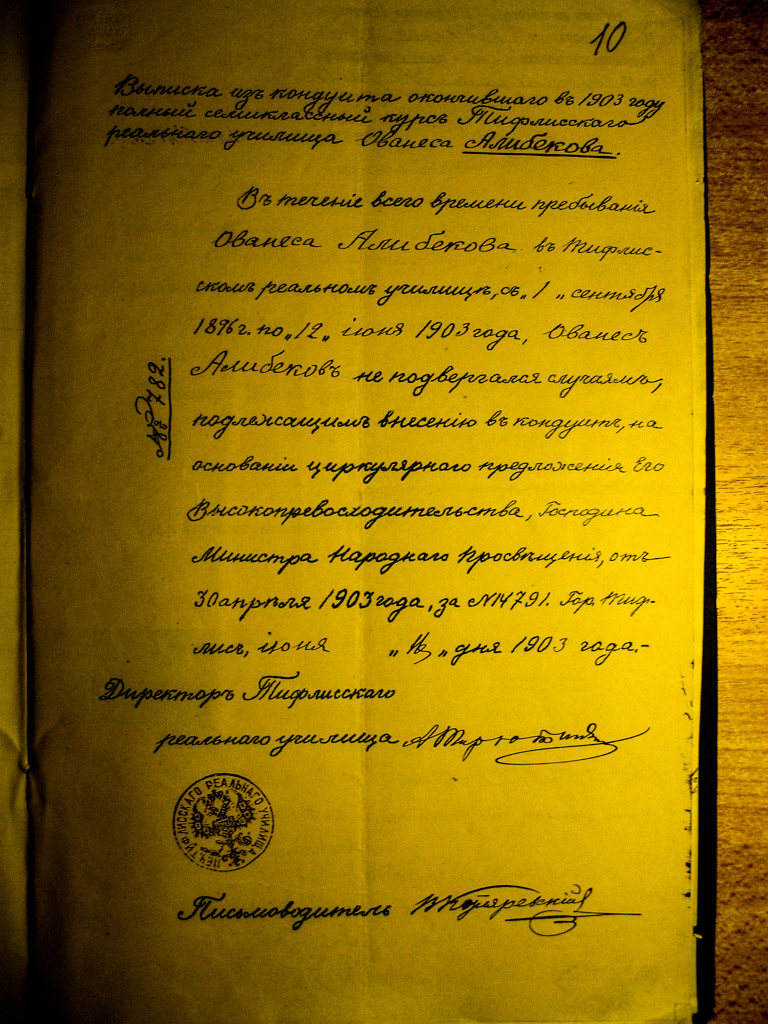 10
Выписка изъ кондуита окончившаго въ 1903 году
полный семиклассный курсъ Тифлисскаго
реальнаго училища Ованеса Алибекова.
Въ теченіе всего времени пребыванія
Ованеса Алибекова въ Тифлис-
скомъ реальномъ училищѣ, съ „1„ сентября
1896 г. по „12„ іюня 1903 года, Ованесъ
Алибековъ не подвергался случаямъ,
подлежащимъ внесенію въ кондуитъ, на
№ 782.
основаніи циркулярнаго предложенія Его
Высокопревосходительства, Господина
Министра Народнаго Просвѣщенія, отъ
30 апрѣля 1903 года, за №14791. Гор. Тиф-
лисъ, іюня „ „ дня 1903 года.-
Директоръ Тифлисскаго
реальнаго училища
ПЕЧ. ТИФЛИССКАГО РЕАЛЬНАГО УЧИЛИЩА
Письмоводитель